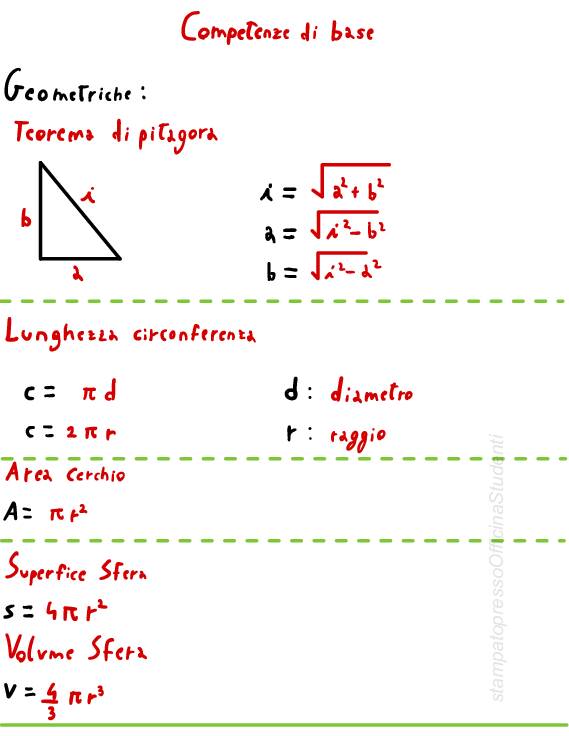 Competenze di base
Geometriche:
Teorema di pitagora
b
i
a
i = √a²+b²
a = √i²-b²
b = √i²-a²
Lunghezza circonferenza
c = π d
d: diametro
c = 2 π r
r: raggio
Area Cerchio
A = π r²
Superfice Sfera
s = 4 π r²
Volume Sfera
V = 4/3 π r³
stampatopressoOfficinaStudenti